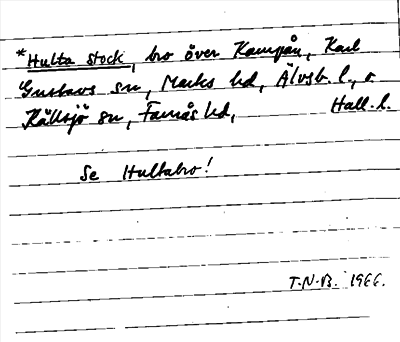 *Hulta stock, bro över Kampån, Karl
Gustavs sn, Marks hd, Älvsb. l., o.
Källsjö sn, Faurås hd, Hall. l.
Se Hultabro!
T.N.B. 1966.